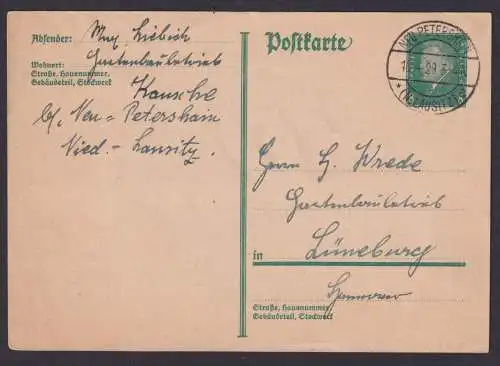 Absender: Max Liebich
Gartenbaubetrieb
Wohnort:
Straße, Hausnummer,
Gebäudeteil, Stockwerk
Kausche
b/. Neu = Petershain
Nied. - Lausitz.
Postkarte
NEU PETERSHAIN
(NL LAUSITZ)
Herrn H. Wrede
Gartenbaubetrieb
in Lüneburg
Hannover
Straße, Hausnummer,
Gebäudeteil, Stockwerk